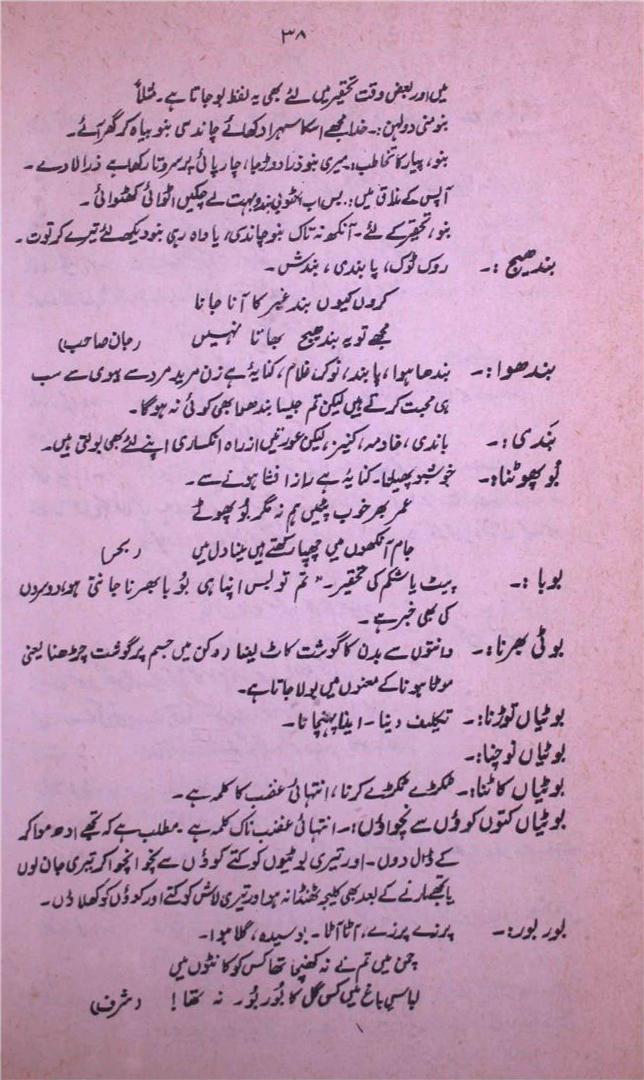 ۳۸
میں اور بعض وقت تحقیر میں لئے بھی یہ لفظ بولا جاتا ہے۔ مثلاً
بنو منی دولہن :۔ خدا مجھے اسکا سہرا دکھائے چاند سی بنو بیاہ کر گھر آئے۔
بنو، پیار کا تخاطب، میری بنو ذرا دوڑ جا، چارپائی پر سروتا رکھا ہے ذرا لا دے۔
آپس کے مذاق میں :۔ بس اب ہٹو بی بنو بہت لے چکیں اٹھائی کھٹوائی۔
بنو، تحقیر کے لئے۔ آنکھ نہ ناک بنو چاند سی، یا واہ ری بنو دیکھ لئے تیرے کرتوت۔
بندھیج :۔ روک ٹوک، پابندی، بندش۔
کروں کیوں بند غیر کا آنا جانا
مجھے تو یہ بندھیج بھاتا نہیں (جان صاحب)
بندھوا :۔ بندھا ہوا، پابند، نوکر، غلام، کنایۂ ہے زن مرید مرد سے بیوی سے سب
ہی محبت کرتے ہیں لیکن تم جیسا بندھوا بھی کوئی نہ ہوگا۔
بَندی :۔ باندی، خادمہ، کنیز، لیکن عورتیں ازراہ انکساری اپنے لئے بھی بولتی ہیں۔
بُو پھوٹنا :۔ خوشبو پھیلنا۔ کنایۂ ہے راز افشا ہونے سے۔
عمر بھر خوب پئیں ہم نہ مگر بُو پھوٹے
جام آنکھوں میں چھپا رکھتے ہیں مینا دل میں (بحر)
بوبا :۔ پیٹ یا شکم کی تحقیر۔ "تم تو بس اپنا ہی بُوبا بھرنا جانتی ہو، دوسروں
کی بھی خبر ہے۔
بوٹی بھرنا :۔ دانتوں سے بدن کا گوشت کاٹ لینا، دکن میں جسم پر گوشت چڑھنا یعنی
موٹا ہونا کے معنوں میں بولا جاتا ہے۔
بوٹیاں توڑنا :۔ تکلیف دینا۔ ایذا پہنچانا۔
بوٹیاں نوچنا :۔
بوٹیاں کاٹنا :۔ ٹکڑے ٹکڑے کرنا، انتہائی غضب کا کلمہ ہے۔
بوٹیاں کتوں کوؤں سے نچواؤں :۔ انتہائی غضب ناک کلمہ ہے۔ مطلب ہے کہ تجھے ادھ موا کر
کے ڈال دوں۔ اور تیری بوٹیوں کو کتے کوؤں سے نچوا نچوا کر تیری جان لوں
یا تجھے مارنے کے بعد بھی کلیجہ ٹھنڈا نہ ہو اور تیری لاش کو کتے اور کوؤں کو کھلاؤں۔
بور بور :۔ پرزے پرزے، آٹا آٹا۔ بوسیدہ، گلا ہوا۔
چمن میں تم نے نہ کھینچا تھا کس کو کانٹوں میں
لباس باغ میں کس گل کا بُور بُور نہ تھا! (شرف)